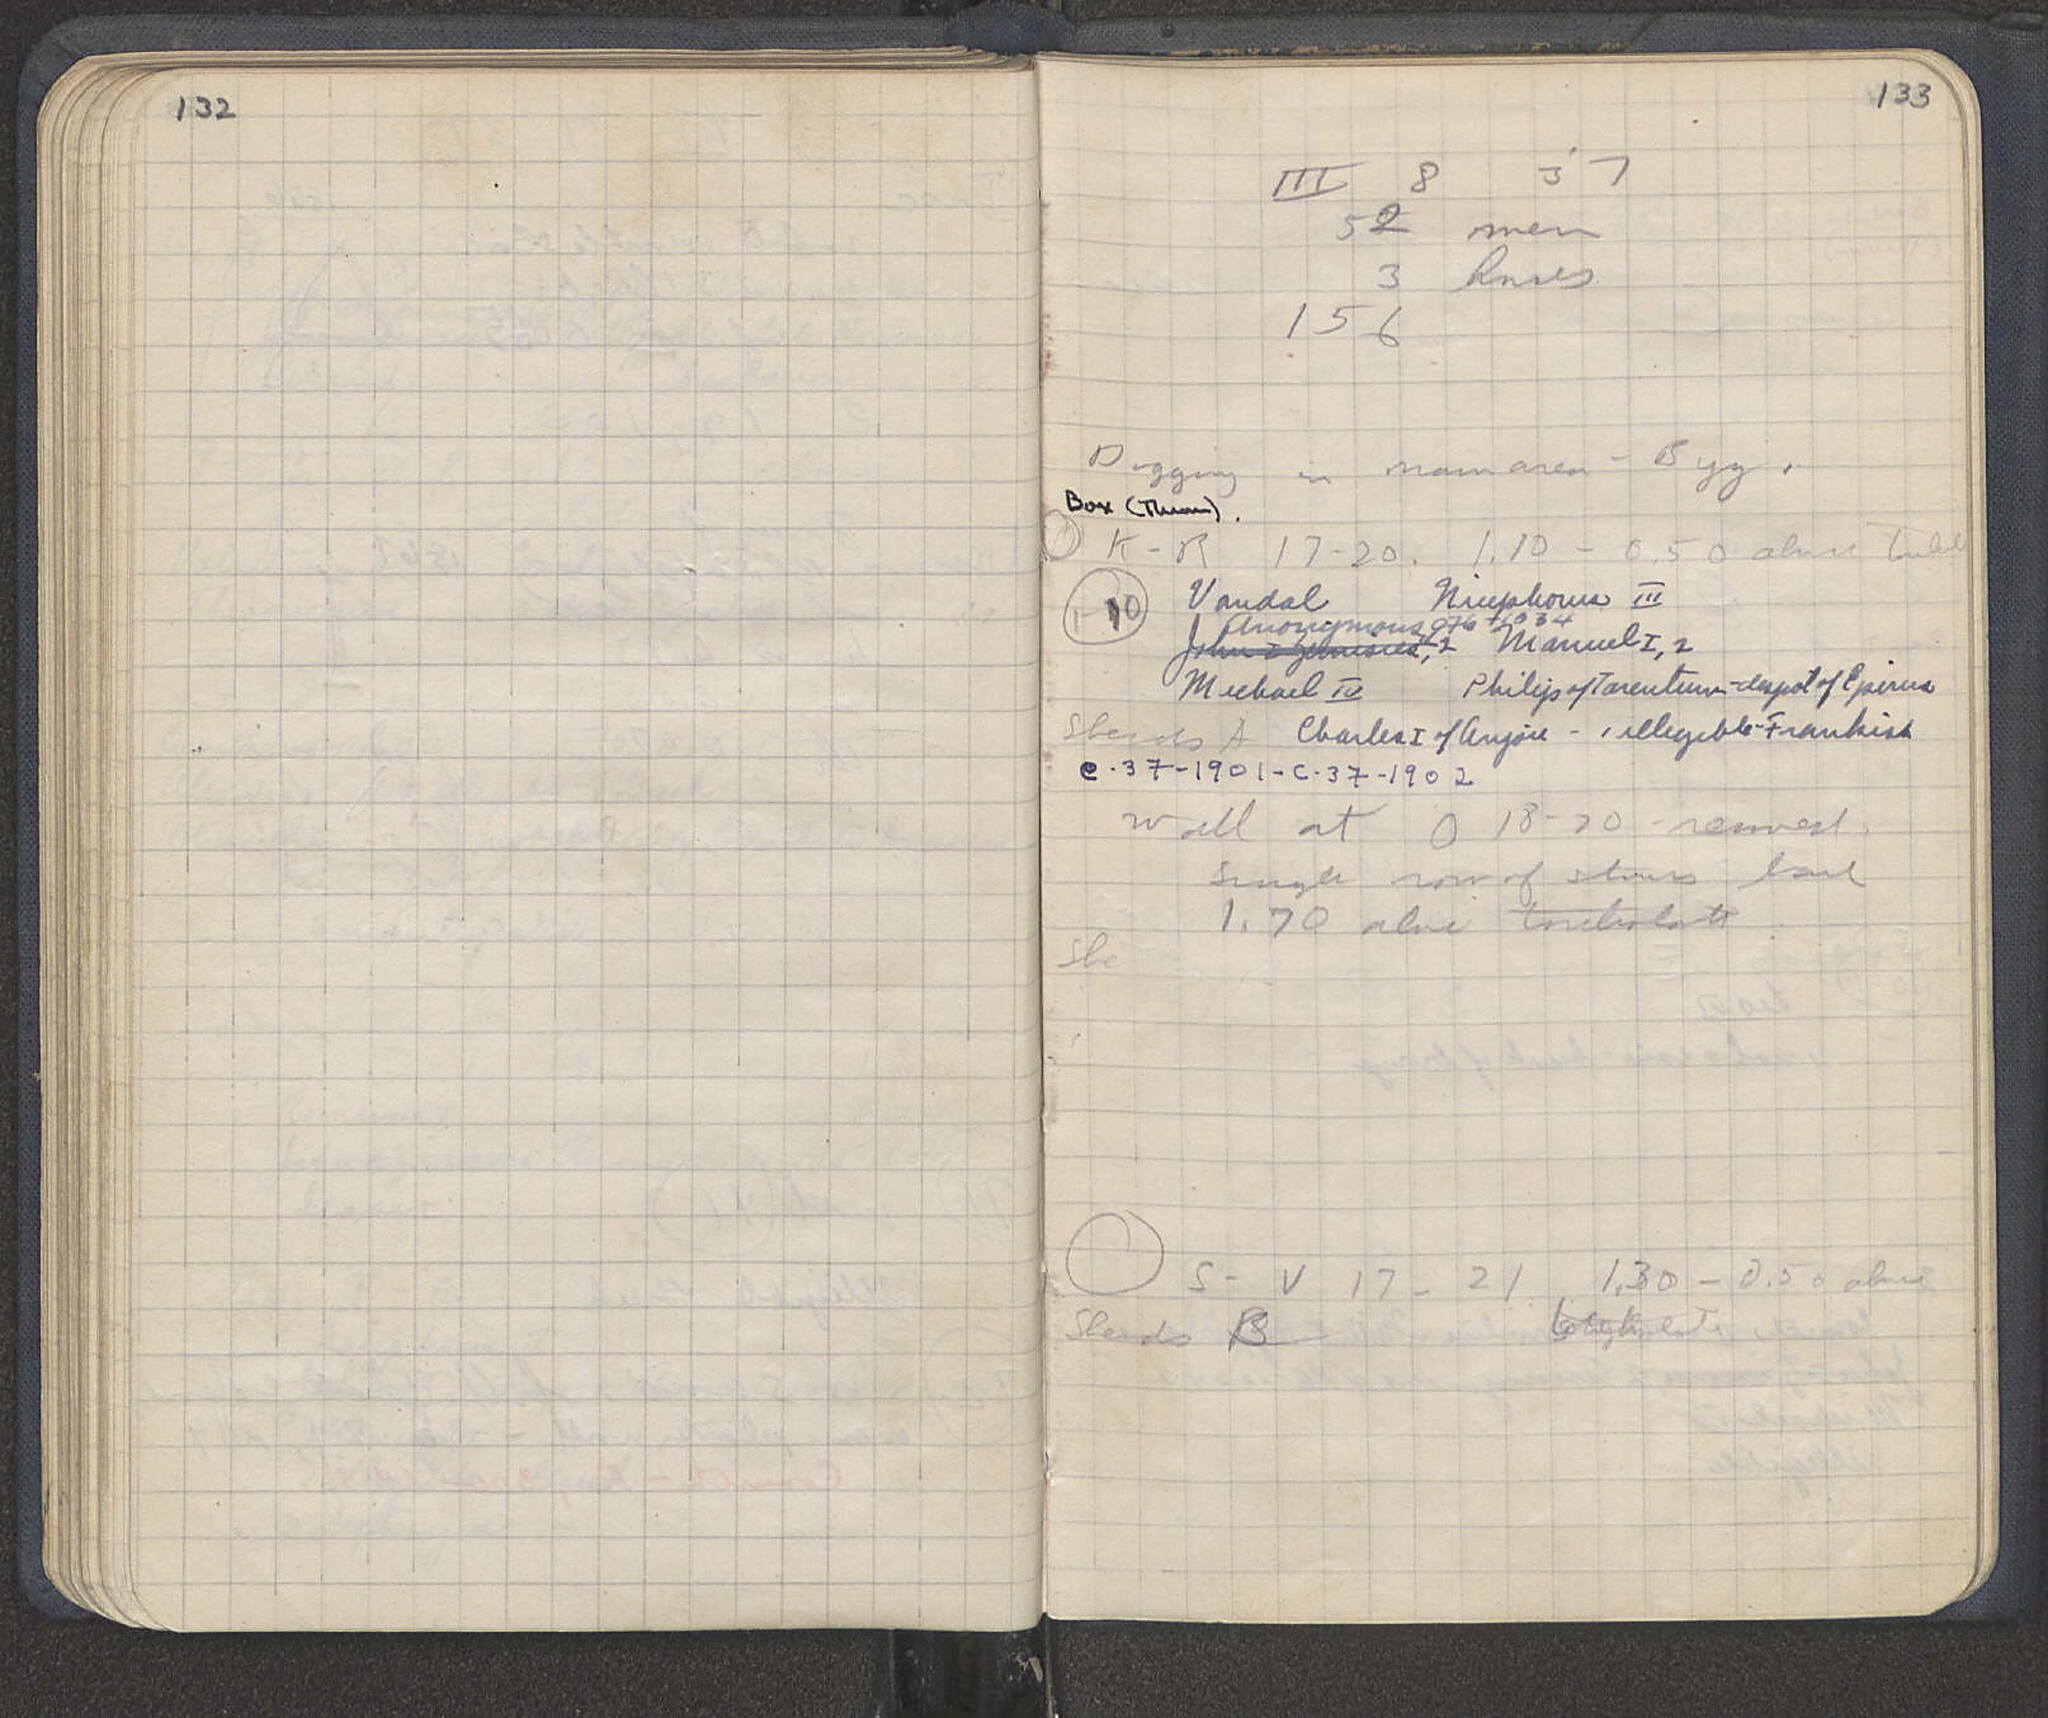 132
133
III 8 37
52 men
3 horses
156
Digging in main area - Byz.
Box (Thren).
K-R 17-20. 1.10 - 0.50 above
1-10 Vandal Nicephorus III
Anonymous 976-1034
John I Zimisces, 2 Manuel I, 2
Michael IV Philip of Tarentum-despot of Epirus
Sherds A Charles I of Anjou - 1 illegible-Frankish
C-37-1901-C-37-1902
Wall at O 18-20 removed.
Single row of stones laid
1.70 above
She
S- V 17- 21 1.30 - 0.50 above
Sherds B